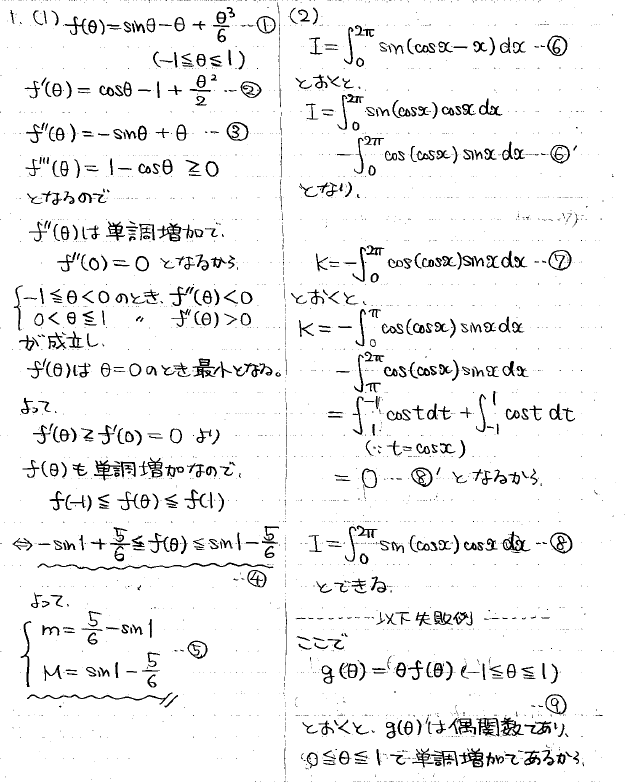 1. (1) f(θ)=sinθ-θ+θ³/6 …①
(-1≦θ≦1)
f'(θ)=cosθ-1+θ²/2 …②
f''(θ)=-sinθ+θ …③
f'''(θ)=1-cosθ≧0
となるので
f''(θ)は単調増加で、
f''(0)=0 となるから、
{-1≦θ<0のとき、f''(θ)<0
0<θ≦1 〃 f''(θ)>0
が成立し、
f'(θ)は θ=0のとき最小となる。
よって、
f'(θ)≧f'(0)=0 より
f(θ)も単調増加なので、
f(-1)≦f(θ)≦f(1)
⇔-sin1+5/6≦f(θ)≦sin1-5/6
…④
よって、
{m=5/6-sin1
M=sin1-5/6 …⑤
(2)
I=∫₀^2π sin(cosx-x)dx …⑥
とおくと、
I=∫₀^2π sin(cosx)cosxdx
-∫₀^2π cos(cosx)sinxdx …⑥'
となり、
K=-∫₀^2π cos(cosx)sinxdx …⑦
とおくと、
K=-∫₀^π cos(cosx)sinxdx
-∫_π^2π cos(cosx)sinxdx
=∫₁^-1 costdt+∫_-1^1 costdt
(∵t=cosx)
=0 …⑧' となるから、
I=∫₀^2π sin(cosx)cosxdx …⑧
とできる。
-------以下失敗例-------
ここで
g(θ)=θf(θ) (-1≦θ≦1)
…⑨
とおくと、g(θ)は偶関数であり、
0≦θ≦1で単調増加であるから、